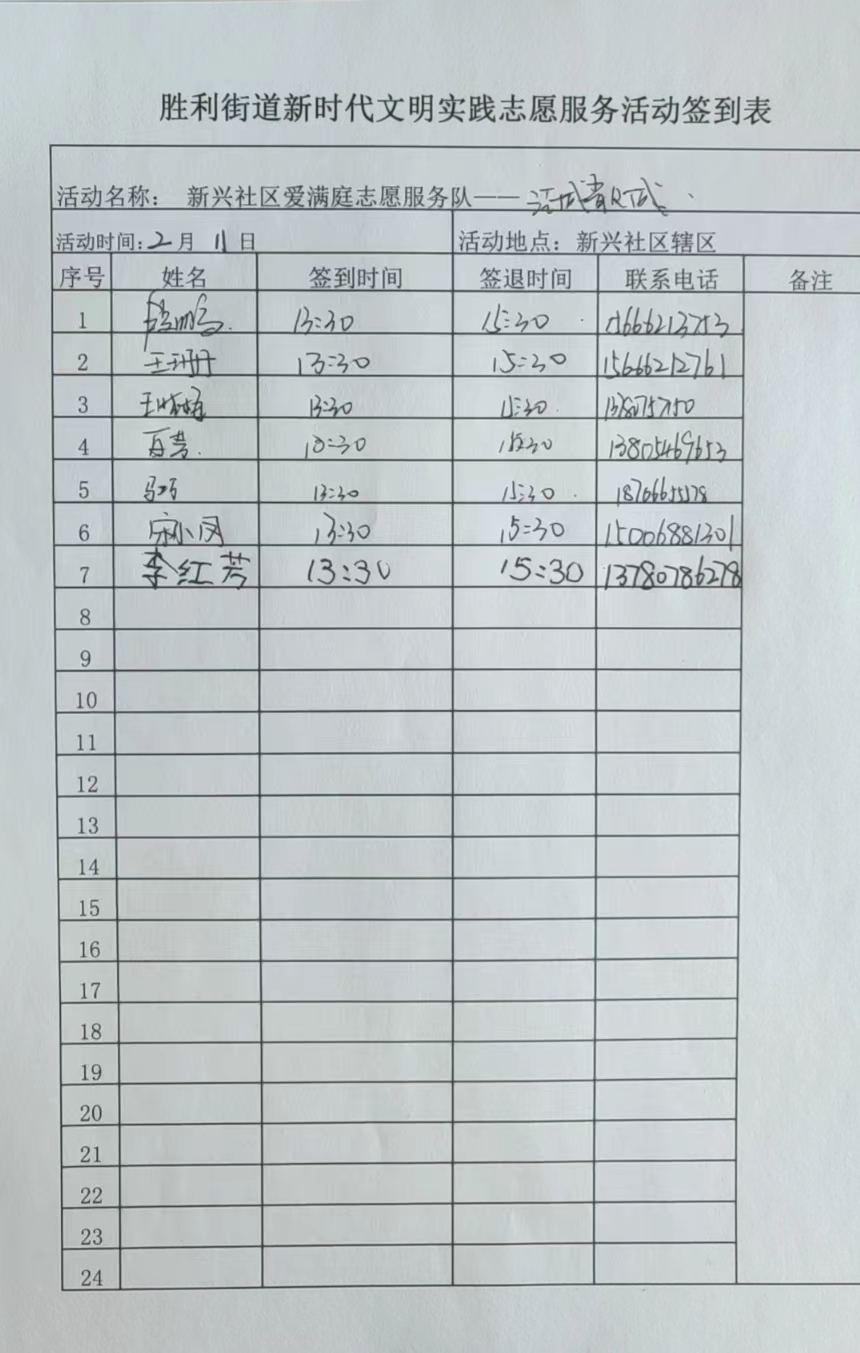 胜利街道新时代文明实践志愿服务活动签到表
活动名称: 新兴社区爱满庭志愿服务队——
活动时间:2月11日 活动地点:新兴社区辖区
序号 姓名 签到时间 签退时间 联系电话 备注
1 13:30 15:30
2 王珊丹 13:30 15:30 15666212761
3 13:30 15:30
4 13:30 15:30 13805469653
5 13:30 15:30 18706655578
6 宋小凤 13:30 15:30 15006881301
7 李红芳 13:30 15:30 13780786278
8
9
10
11
12
13
14
15
16
17
18
19
20
21
22
23
24